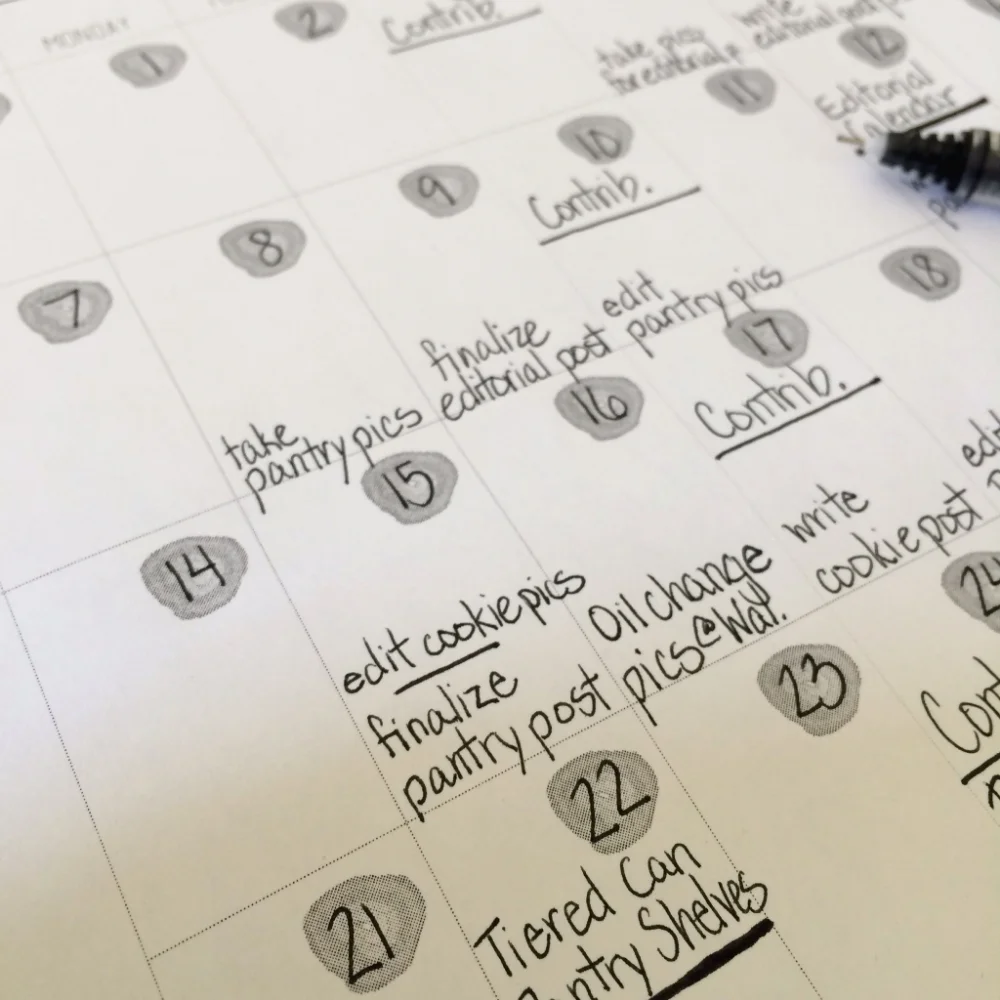 MONDAY
1
2
Contrib.
take pics
for editorial
write
editorial post
7
8
9
10
Contrib.
11
12
Editorial
Calendar
take
pantry pics
finalize
editorial post
edit
pantry pics
14
15
edit cookie pics
finalize
pantry post
16
Oil change
pics @ Wal.
17
Contrib.
write
cookie post
18
21
22
Tiered Can
Pantry Shelves
23
24